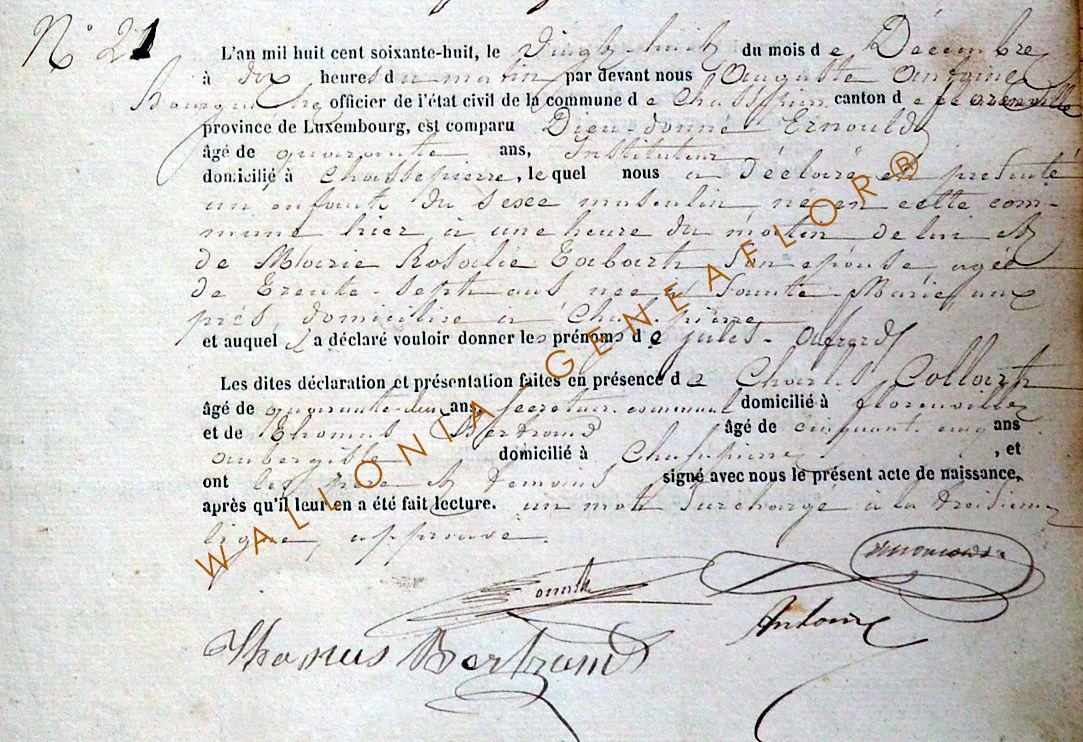 N° 21
L'an mil huit cent soixante-huit, le Vingt-huit du mois de Décembre
à dix heures du matin par devant nous Auguste Antoine
Bourguemestre officier de l'état civil de la commune de Chassepierre canton de florenville
province de Luxembourg, est comparu Dieu-donné Ernould
âgé de quarante ans, Instituteur
domicilié à Chassepierre, le quel nous a déclaré et présenté
un enfant du sexe masculin, né en cette com-
mune hier à une heure du matin de lui et
de Marie Rosalie Tabart son épouse, agée
de Trente-Sept ans née à Sainte-Marie aux
prés, domiciliée à Chassepierre
et auquel il a déclaré vouloir donner les prénoms de jules-Alfred
Les dites déclaration et présentation faites en présence de Charles Collart
âgé de quarante-deux ans, Secrétaire communal domicilié à florenville
et de Thomas Bertrand âgé de cinquante cinq ans
aubergiste domicilié à Chassepierre, et
ont les père et témoins signé avec nous le présent acte de naissance,
après qu'il leur en a été fait lecture. un mot surchargé à la troisième
ligne, approuvé.
Antoine
Thomas Bertrand
WALLONIA GENEAFLOR®